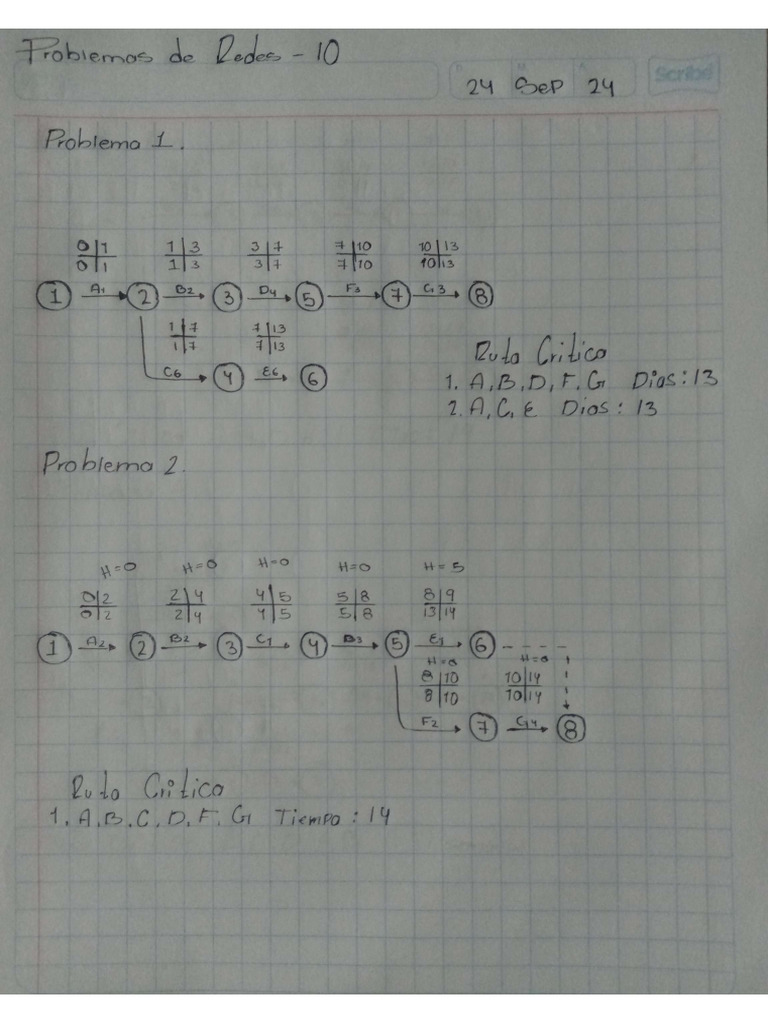 Problemas de Redes - 10
24 Sep 24
Scribe
Problema 1.
0 1 1 3 3 7 7 10 10 13
0 1 1 3 3 7 7 10 10 13
1 A1 2 B2 3 D4 5 F3 7 G3 8
1 7 7 13
1 7 7 13
C6 4 E6 6
Ruta Critica
1. A, B, D, F, G Dias: 13
2. A, C, E Dias: 13
Problema 2.
H=0 H=0 H=0 H=0 H=5
0 2 2 4 4 5 5 8 8 9
0 2 2 4 4 5 5 8 13 14
1 A2 2 B2 3 C1 4 D3 5 E1 6
H=0 H=0
8 10 10 14
8 10 10 14
F2 7 G4 8
Ruta Critica
1. A, B, C, D, F, G Tiempo: 14